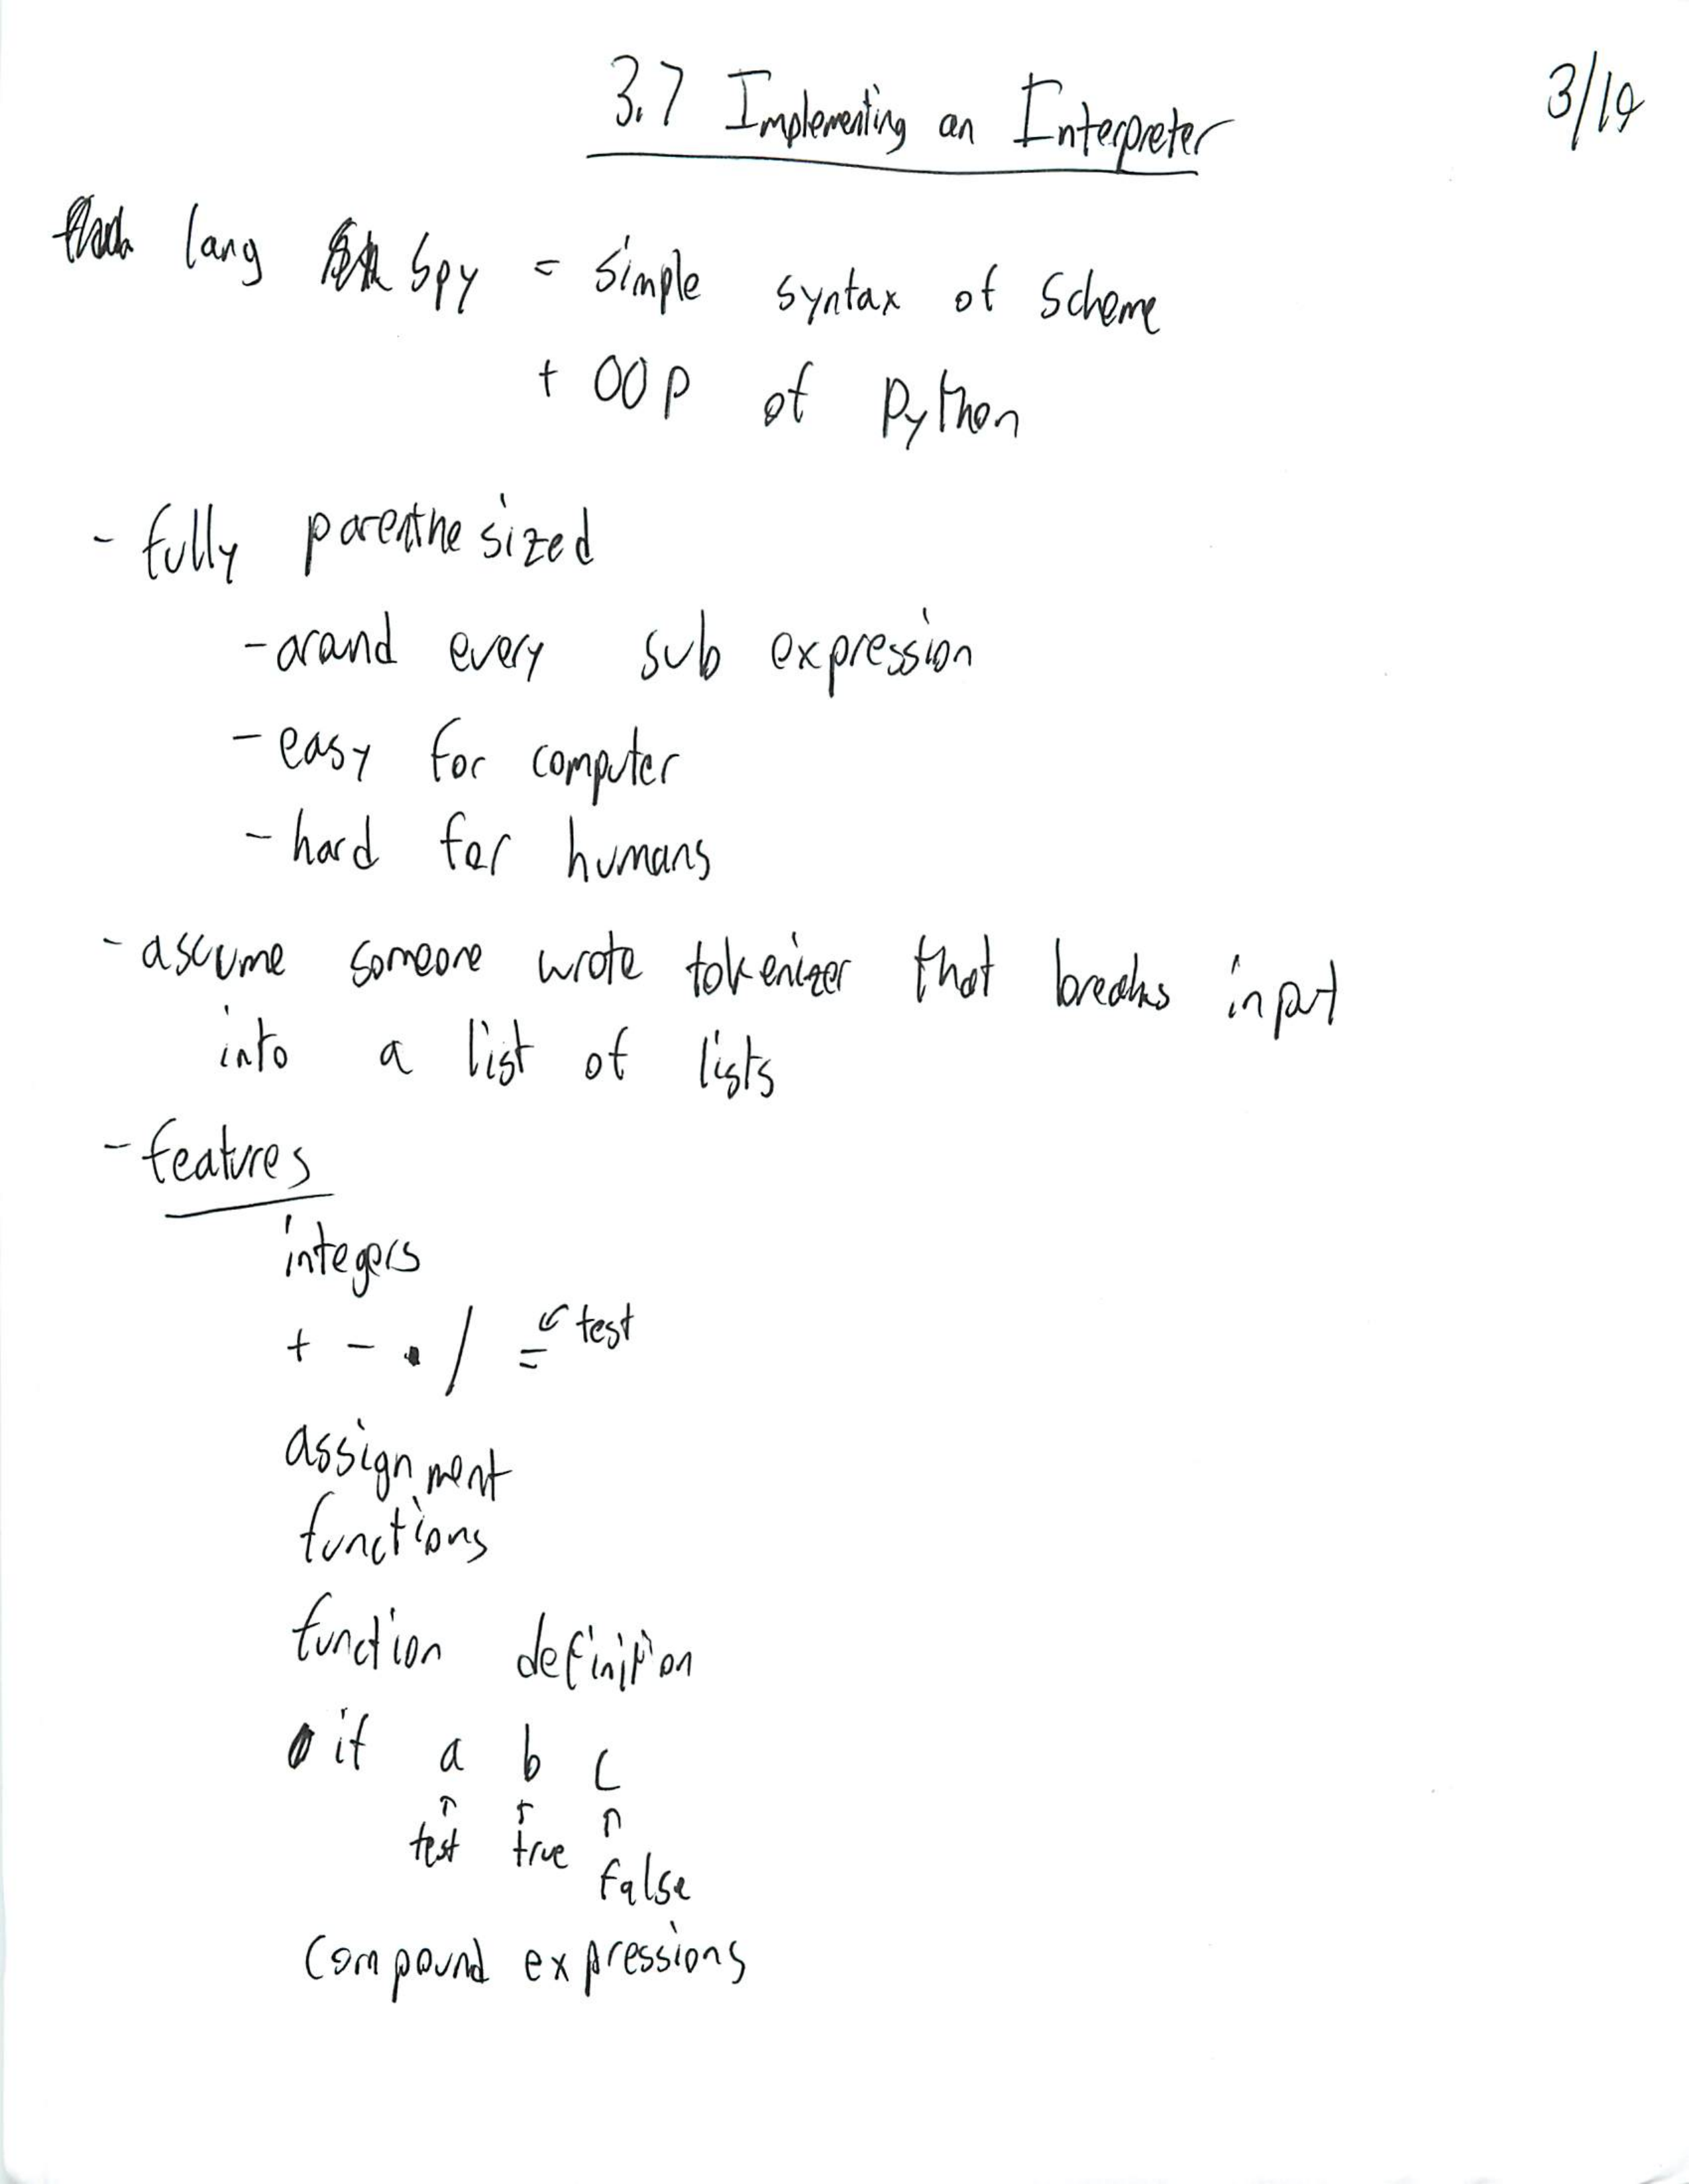 3.7 Implementing an Interpreter
3/19
lang Spy = simple syntax of Scheme
+ OOP of Python
- fully parenthesized
- around every sub expression
- easy for computer
- hard for humans
- assume someone wrote tokenizer that breaks input
into a list of lists
- features
integers
+ - • / = ↙ test
assignment
functions
function definition
if a b c
↑ ↑ ↑
test true false
compound expressions